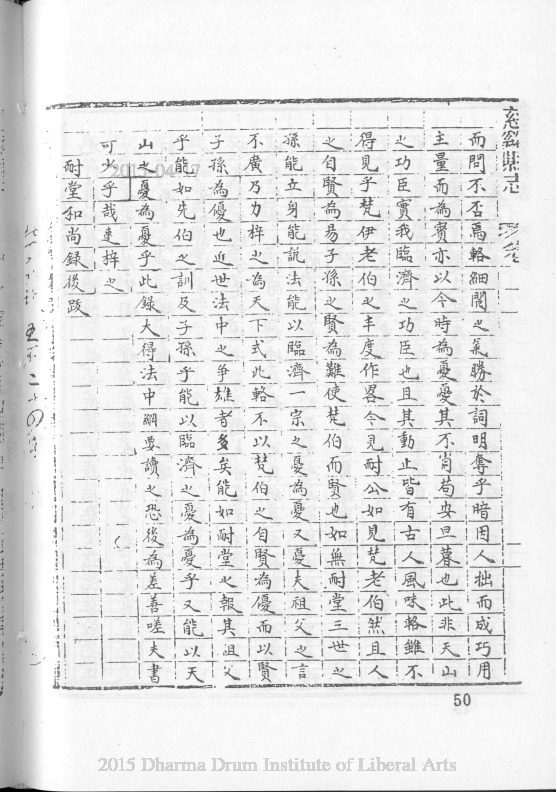 而問不否焉輅細閱之氣勝於詞明奪乎暗因人拙而成巧用
主量而為賓亦以今時為憂憂其不肖苟安旦暮也此非天山
之功臣實我臨濟之功臣也且其動止皆有古人風味輅雖不
得見乎梵伊老伯之丰度作畧今見耐公如見梵老伯然且人
之自賢為易子孫之賢為難使梵伯而賢也如無耐堂三世之
孫能立身能說法能以臨濟一宗之憂為憂又憂夫祖父之言
不廣乃力梓之為天下式此輅不以梵伯之自賢為優而以賢
子孫為優也近世法中之爭雄者多矣能如耐堂之報其祖父
乎能如先伯之訓及子孫乎能以臨濟之憂為憂乎又能以天
山之憂為憂乎此錄大得法中綱要讀之恐後為差善嗟夫書
可少乎哉速梓之
耐堂和尚錄後跋
50
2015 Dharma Drum Institute of Liberal Arts